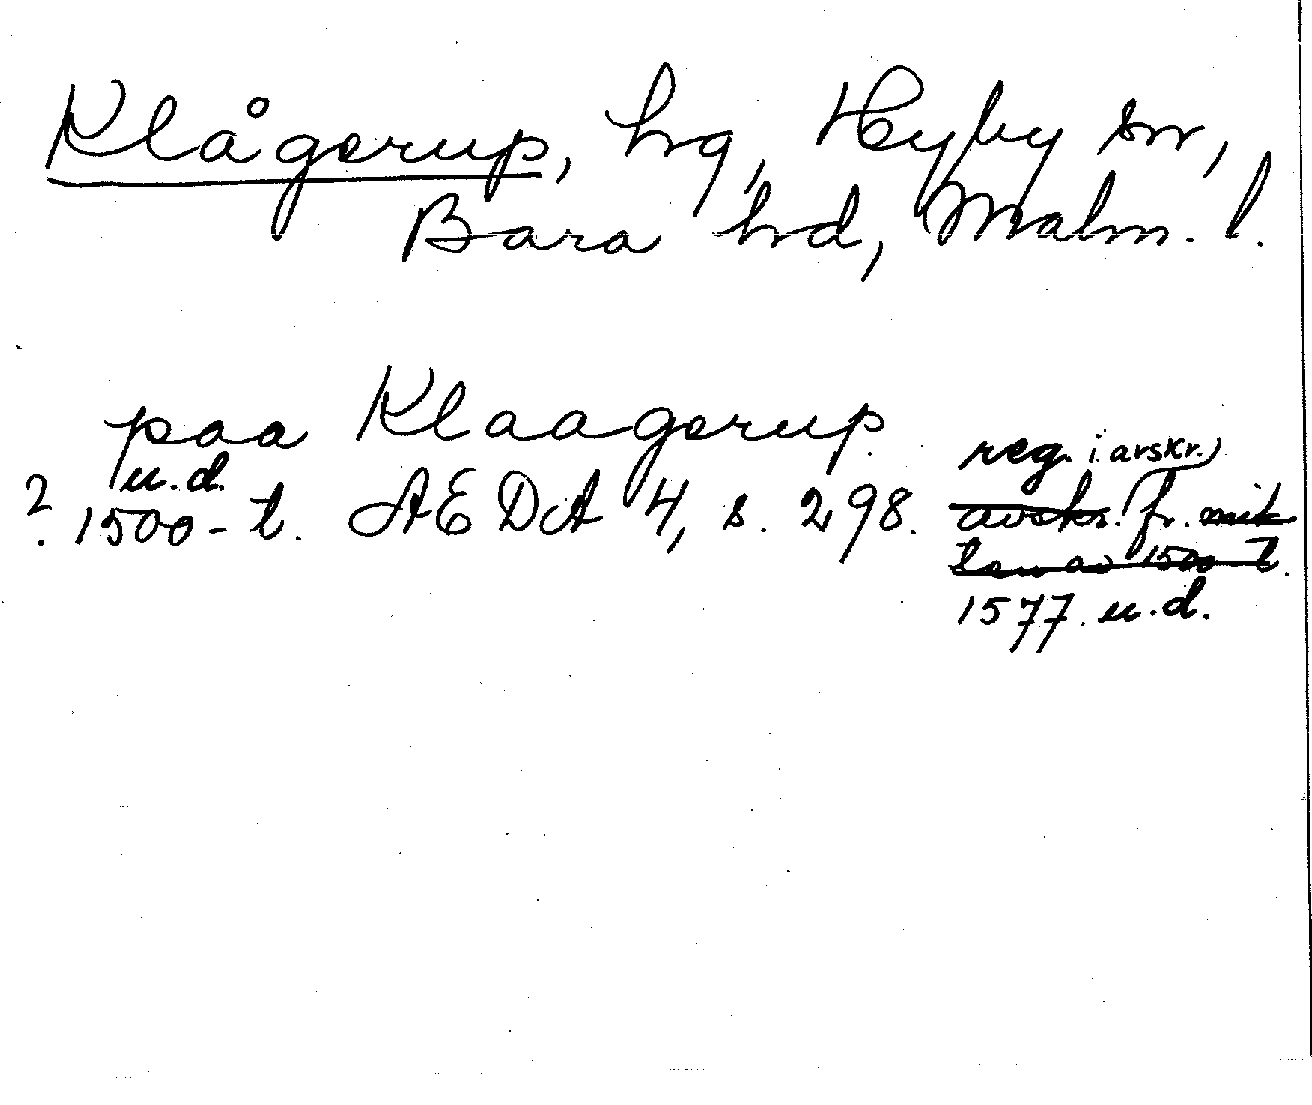 Klågerup, hg, Hyby sn,
Bara hd, Malm. l.
paa Klaagerup
u.d.
? 1500-t. AEDA 4, s. 298. reg. i avskr.
avskr. fr. mit
ten av 1500-t.
1577. u.d.